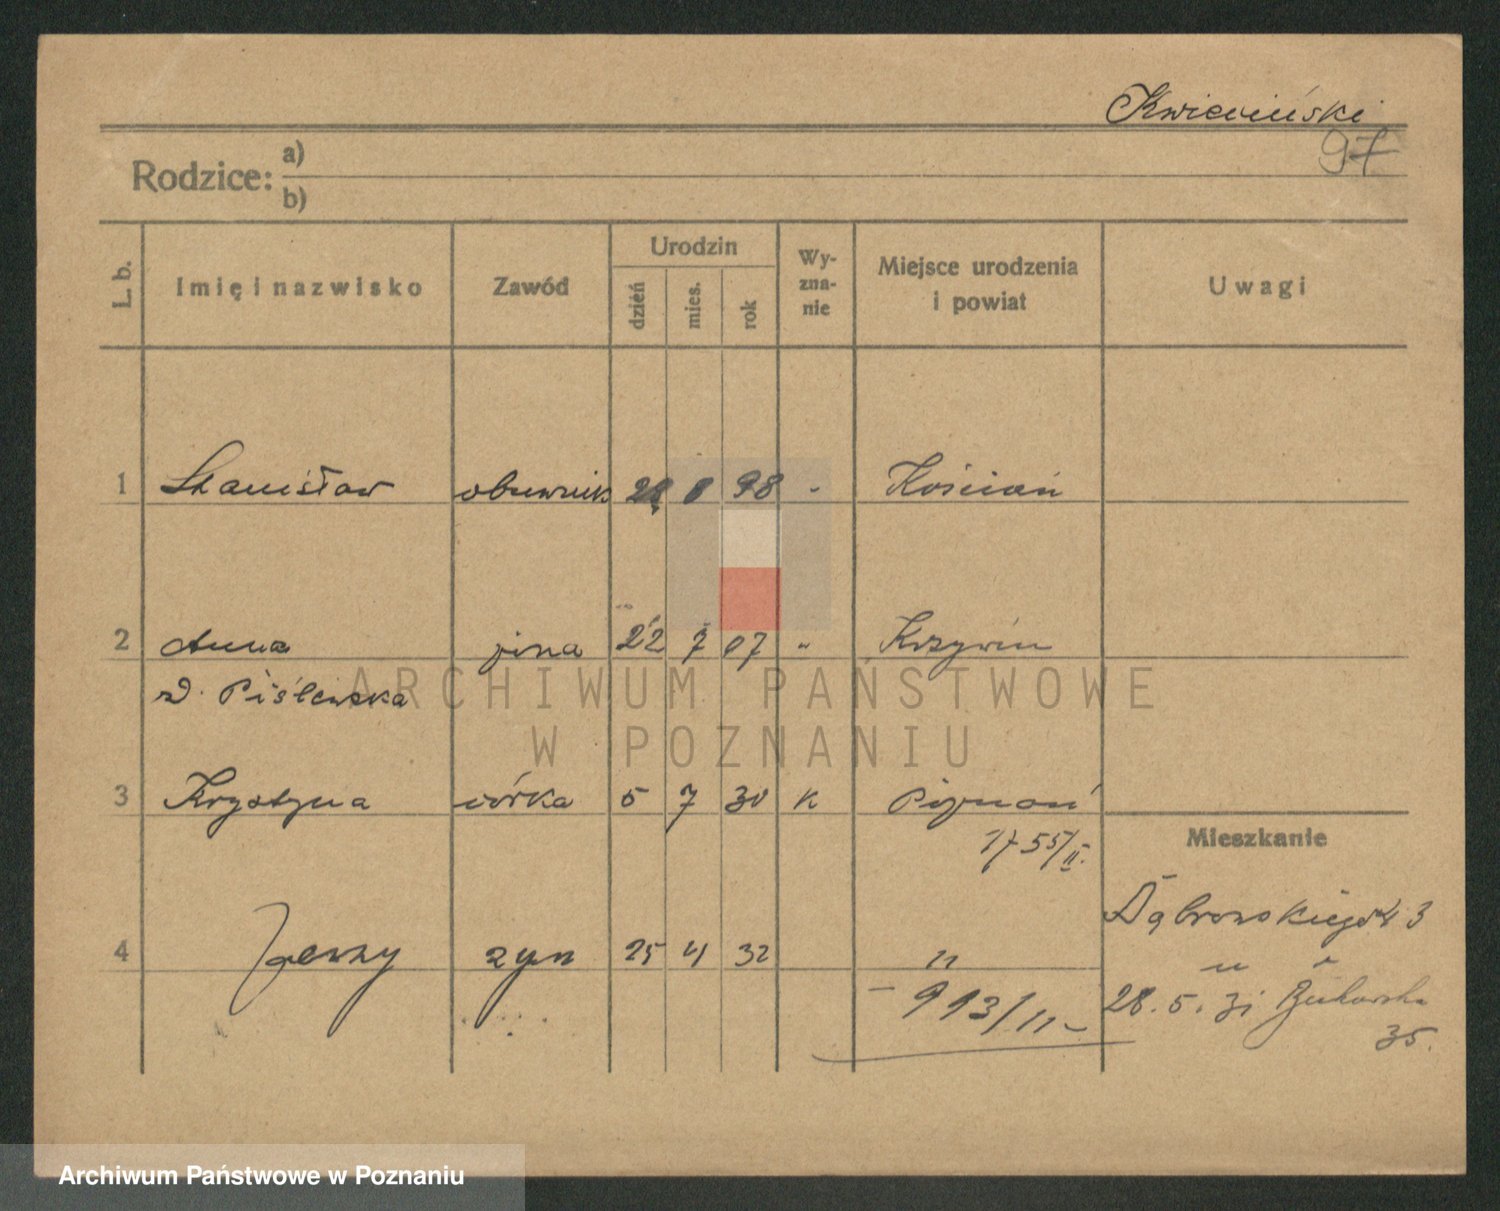 Kwieciński
97
Rodzice: a)
b)
L. b. Imię i nazwisko Zawód Urodzin dzień mies. rok Wy-zna-nie Miejsce urodzenia i powiat Uwagi
1 Stanisław obuwnik 28 8 98 - Kościan
2 Anna żona 22 7 07 " Krzywiń
d. Piślewska
3 Krystyna córka 5 7 30 k Poznań
1755/II.
Mieszkanie
Dąbrowskiego 43
4 Jerzy syn 25 4 32 "
913/II-
28. 5. 31 Bukowska
35.
ARCHIWUM PAŃSTWOWE
W POZNANIU
Archiwum Państwowe w Poznaniu